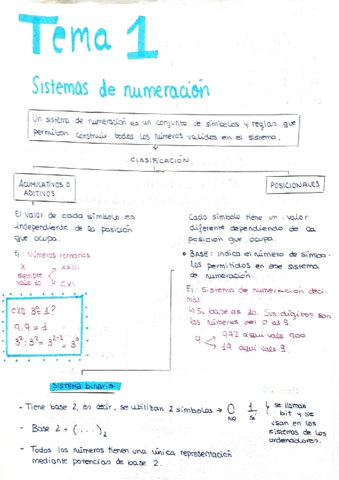 Tema 1
Sistemas de numeración
Un sistema de numeración es un conjunto de símbolos y reglas que
permiten construir todos los números validos en el sistema.
CLASIFICACIÓN
ACUMULATIVOS O
ADITIVOS
El valor de cada símbolo es
independiente de la posición
que ocupa.
Ej: Números romanos
X
siempre
vale 10
XXIII
CXI
¿XQ 3⁰=1?
9:9 = 1
3²:3² = 3²⁻² = 3⁰
POSICIONALES
Cada símbolo tiene un valor
diferente dependiendo de la
posición que ocupa.
BASE: indica el número de símbo-
los permitidos en ese sistema
de numeración.
Ej: Sistema de numeración deci-
mal.
Su base es 10. Sus dígitos son
los números del 0 al 9.
9
972 aquí vale 900
19 aquí vale 9.
SISTEMA binario
- Tiene base 2, es decir, se utilizan 2 símbolos → 0 1
NO SÍ
se llaman
bit y se
usan en los
sistemas de los
ordenadores.
- Base 2 = (...)₂
- Todos los números tienen una única representación
mediante potencias de base 2.